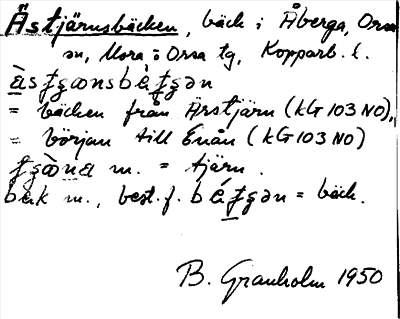 Ästjärnsbäcken, bäck i Åberga, Orsa
sn, Mora o Orsa tg, Kopparb. l.
= bäcken från Ärstjärn (kG 103 NO),
= början till Enån (kG 103 NO)
m. = tjärn.
bæk m., best. f. = bäck.
B. Granholm 1950